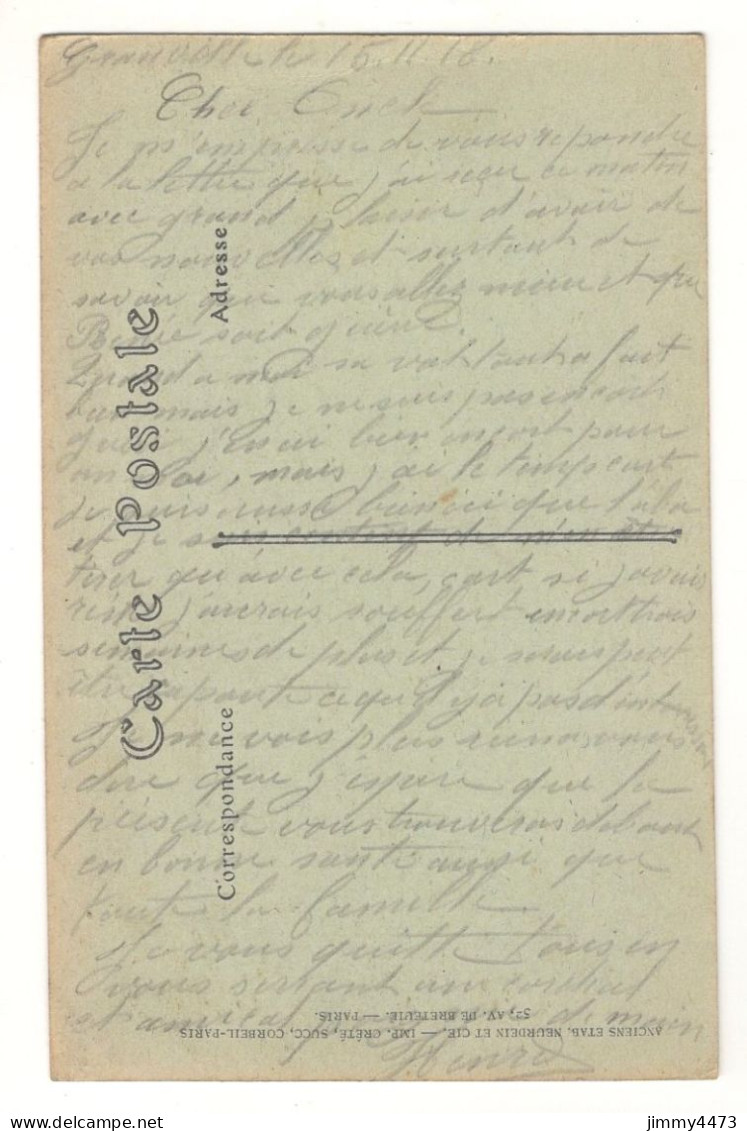 Granville le 15.11.18.
Cher Oncle
Je m'empresse de vous repondre
a la lettre que j'ai reçu ce matin
avec grand plaisir d'avoir de
vos nouvelles et surtout de
savoir que vous allez mieux et que
soit guérie.
Quand a moi sa va tout a fait
bien mais je ne suis pas encore
guéri j'en ai bien encort pour
un , mais j'ai le temps cart
je suis aussi bien ici que la
et je suis content de m'en être
tirer qu'avec cela, cart si j'avais
rien j'aurais souffert encort trois
semaines de plus et je serais peut
être a ce qu'il y a pas
Je ne vois plus rien a vous
dire que j'espère que la
présente vous trouveras debout
en bonne santé aussi que
toute la famille
Je vous quitte tous en
vous serrant une cordial
et amical de main
Henri
Carte Postale
Correspondance
Adresse
ANCIENS ETAB. NEURDEIN ET CIE. — IMP. CRÉTÉ, SUCC, CORBEIL-PARIS
52, AV. DE BRETEUIL. — PARIS.
www.delcampe.net
jimmy4473